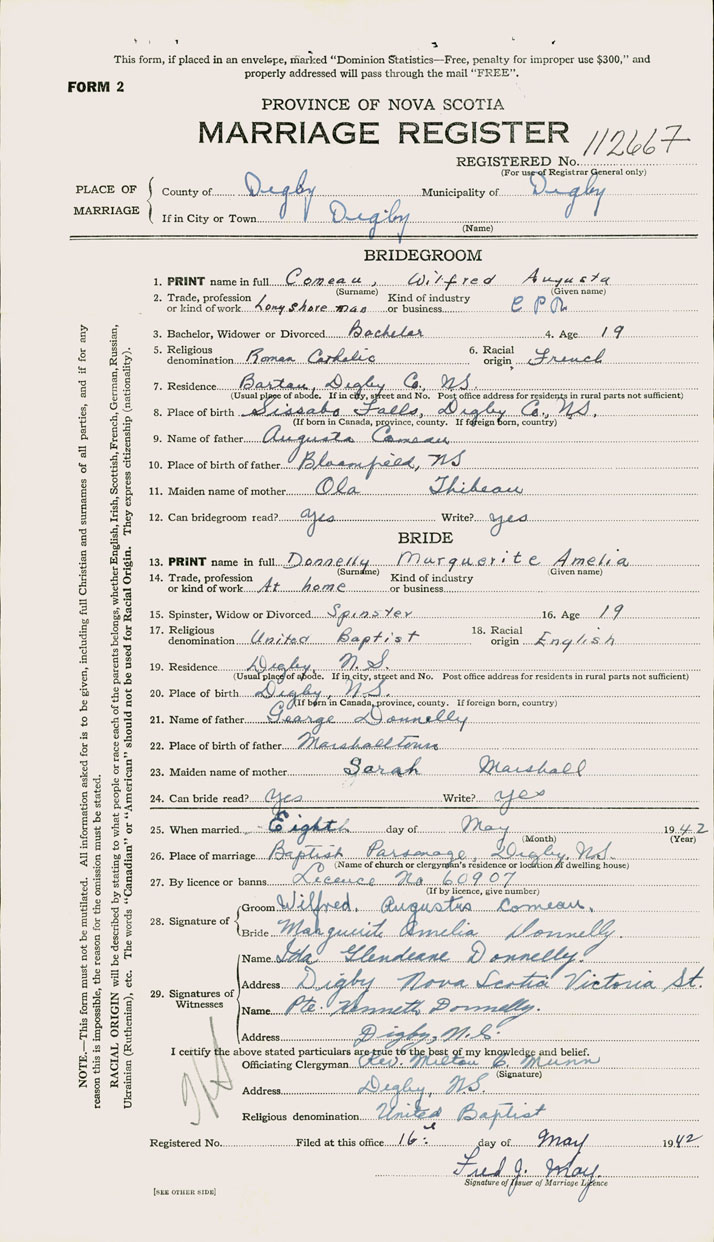 This form, if placed in an envelope, marked "Dominion Statistics—Free, penalty for improper use $300," and
properly addressed will pass through the mail "FREE".
FORM 2
PROVINCE OF NOVA SCOTIA
MARRIAGE REGISTER
REGISTERED No. 112667
(For use of Registrar General only)
PLACE OF MARRIAGE
County of Digby Municipality of Digby
If in City or Town Digby
(Name)
BRIDEGROOM
1. PRINT name in full Comeau, Wilfred Augusta
(Surname) (Given name)
2. Trade, profession or kind of work Longshore man Kind of industry or business C P R
3. Bachelor, Widower or Divorced Bachelor 4. Age 19
5. Religious denomination Roman Catholic 6. Racial origin French
7. Residence Barton, Digby Co., N.S.
(Usual place of abode. If in city, street and No. Post office address for residents in rural parts not sufficient)
8. Place of birth Sissabo Falls, Digby Co., N.S.
(If born in Canada, province, county. If foreign born, country)
9. Name of father Augusta Comeau
10. Place of birth of father Bloomfield, NS
11. Maiden name of mother Ola Thibeau
12. Can bridegroom read? yes Write? yes
BRIDE
13. PRINT name in full Donnelly Marguerite Amelia
(Surname) (Given name)
14. Trade, profession or kind of work At home Kind of industry or business
15. Spinster, Widow or Divorced Spinster 16. Age 19
17. Religious denomination United Baptist 18. Racial origin English
19. Residence Digby, N.S.
(Usual place of abode. If in city, street and No. Post office address for residents in rural parts not sufficient)
20. Place of birth Digby, N.S.
(If born in Canada, province, county. If foreign born, country)
21. Name of father George Donnelly
22. Place of birth of father Marshalltown
23. Maiden name of mother Sarah Marshall
24. Can bride read? Yes Write? yes
25. When married Eighth day of May 1942
(Month) (Year)
26. Place of marriage Baptist Parsonage, Digby, N.S.
(Name of church or clergyman's residence or location of dwelling house)
27. By licence or banns Licence No 60907
(If by licence, give number)
28. Signature of
Groom Wilfred, Augustus Comeau.
Bride Marguerite Amelia Donnelly.
29. Signatures of Witnesses
Name Ida Glendeane Donnelly.
Address Digby Nova Scotia Victoria St.
Name Pte. Kenneth Donnelly.
Address Digby, N.S.
I certify the above stated particulars are true to the best of my knowledge and belief.
Officiating Clergyman Rev. Milton C. Munn
(Signature)
Address Digby, N.S.
Religious denomination United Baptist
Registered No. Filed at this office 16 day of May 1942
Fred J. May.
Signature of Issuer of Marriage Licence
[SEE OTHER SIDE]
NOTE.—This form must not be mutilated. All information asked for is to be given, including full Christian and surnames of all parties, and if for any
reason this is impossible, the reason for the omission must be stated.
RACIAL ORIGIN will be described by stating to what people or race each of the parents belongs, whether English, Irish, Scottish, French, German, Russian,
Ukrainian (Ruthenian), etc. The words "Canadian" or "American" should not be used for Racial Origin. They express citizenship (nationality).